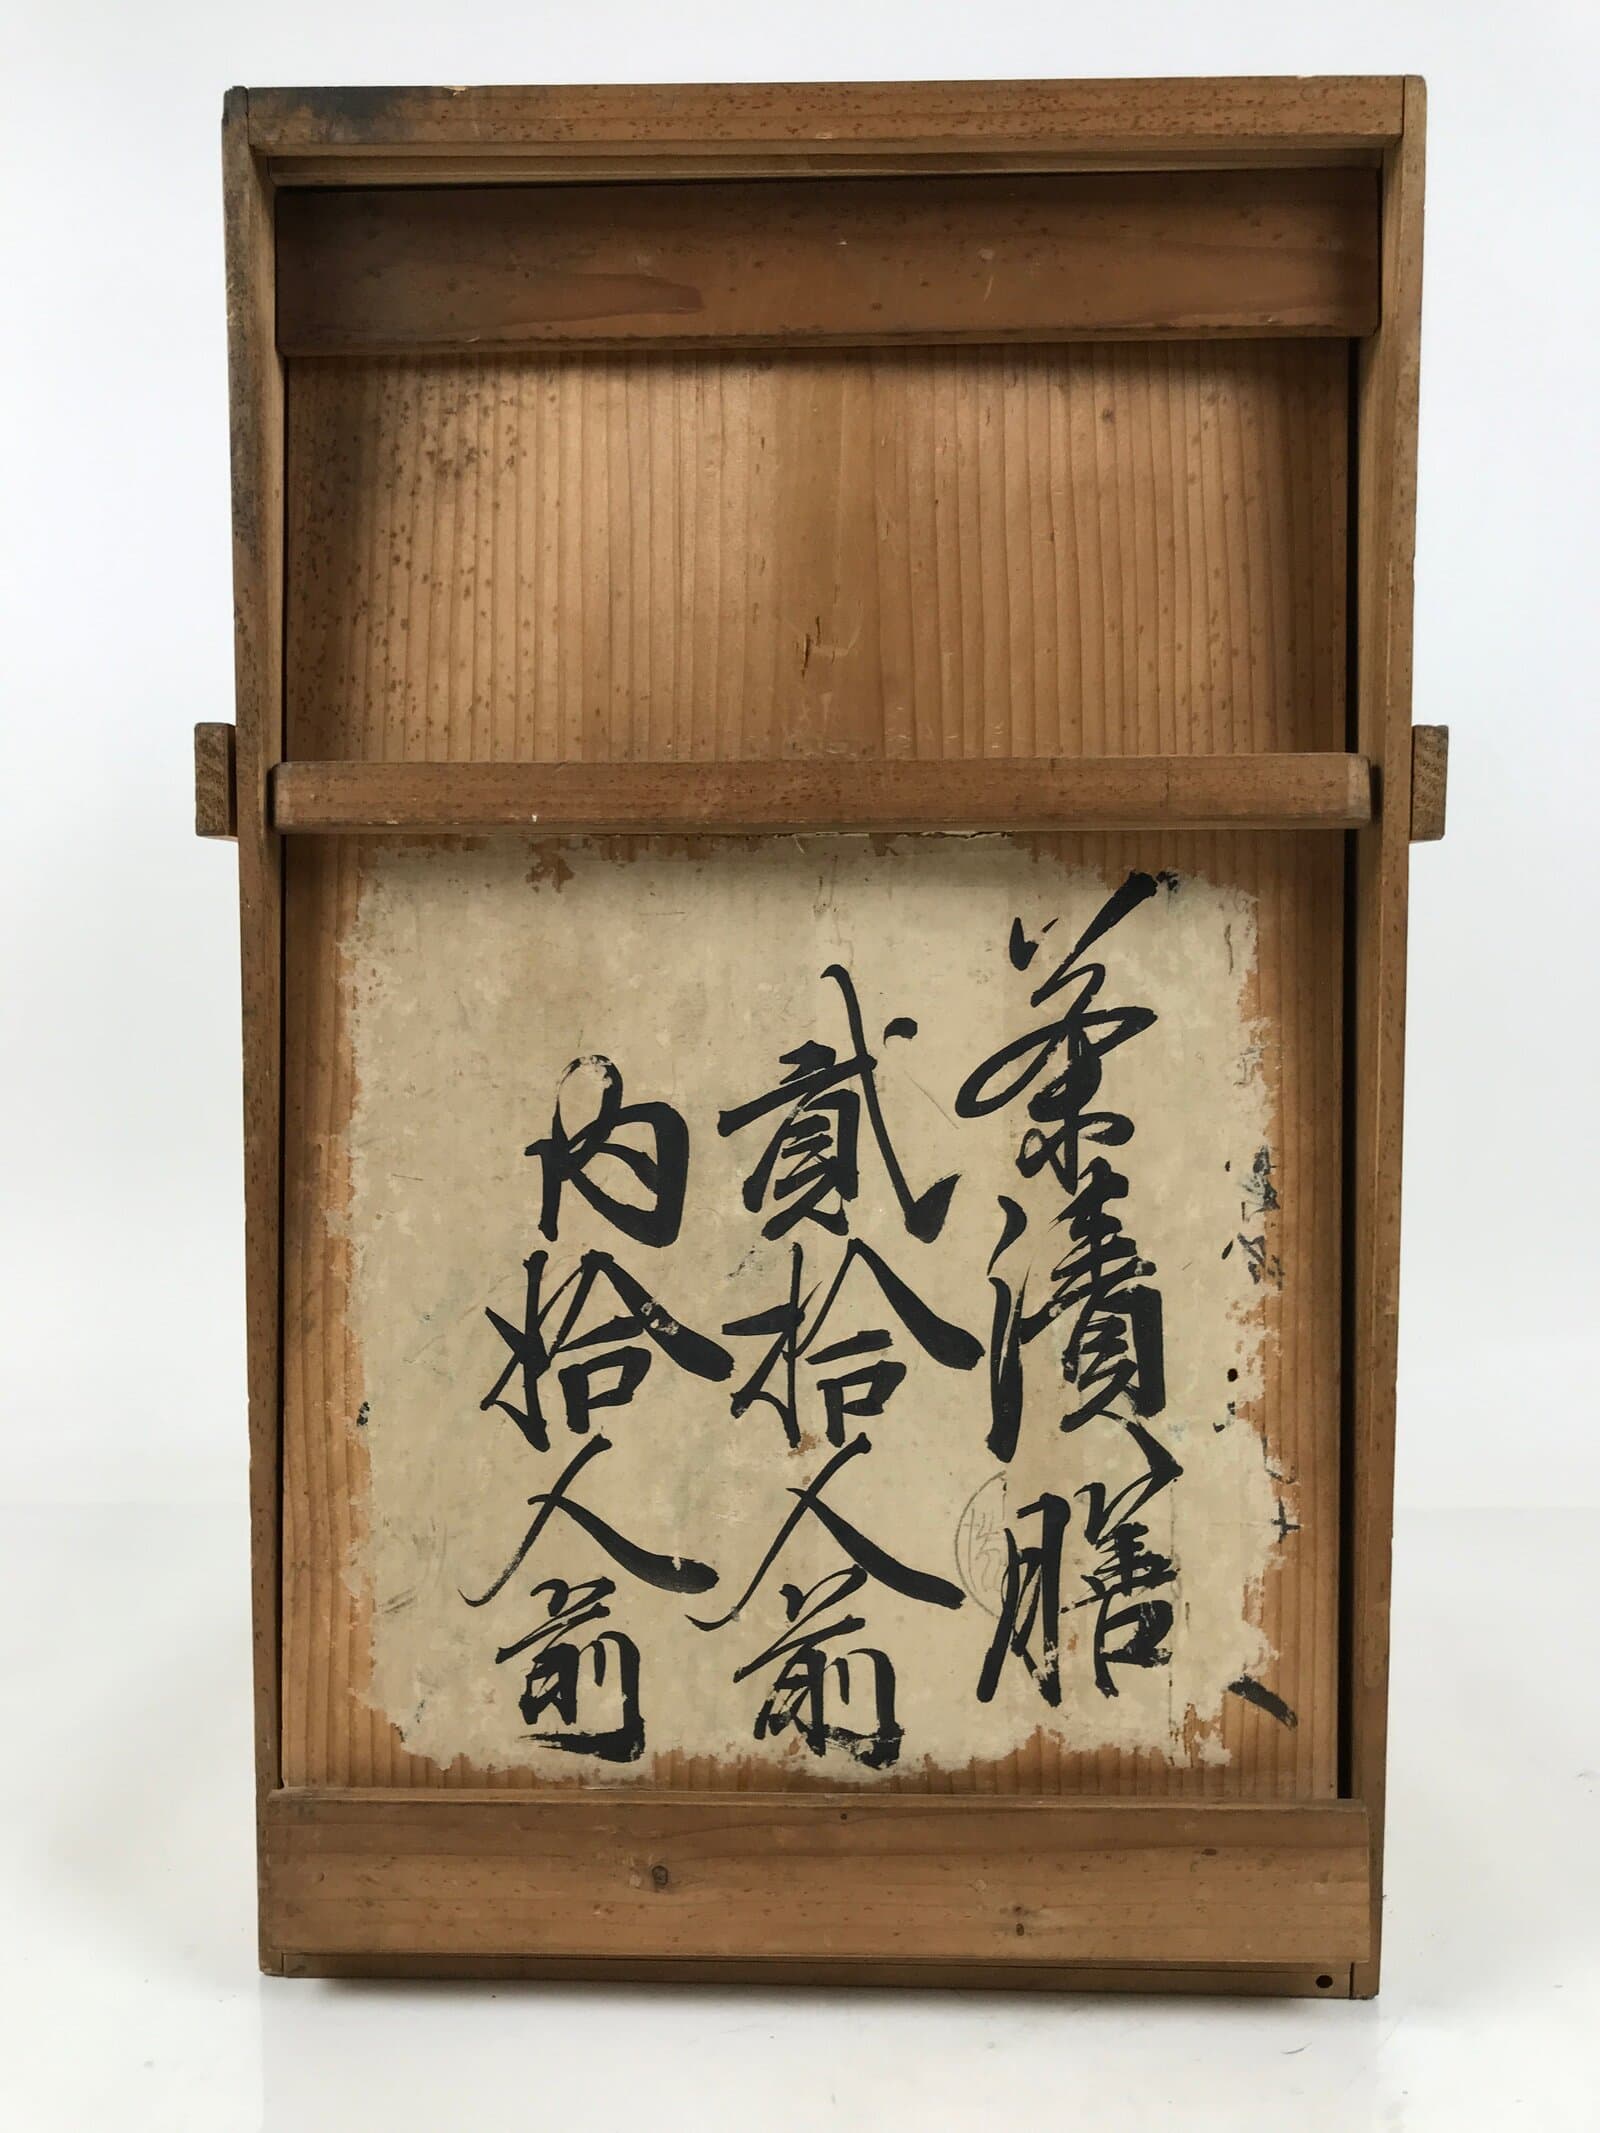 茶漬膳
貳拾人前
内拾人前